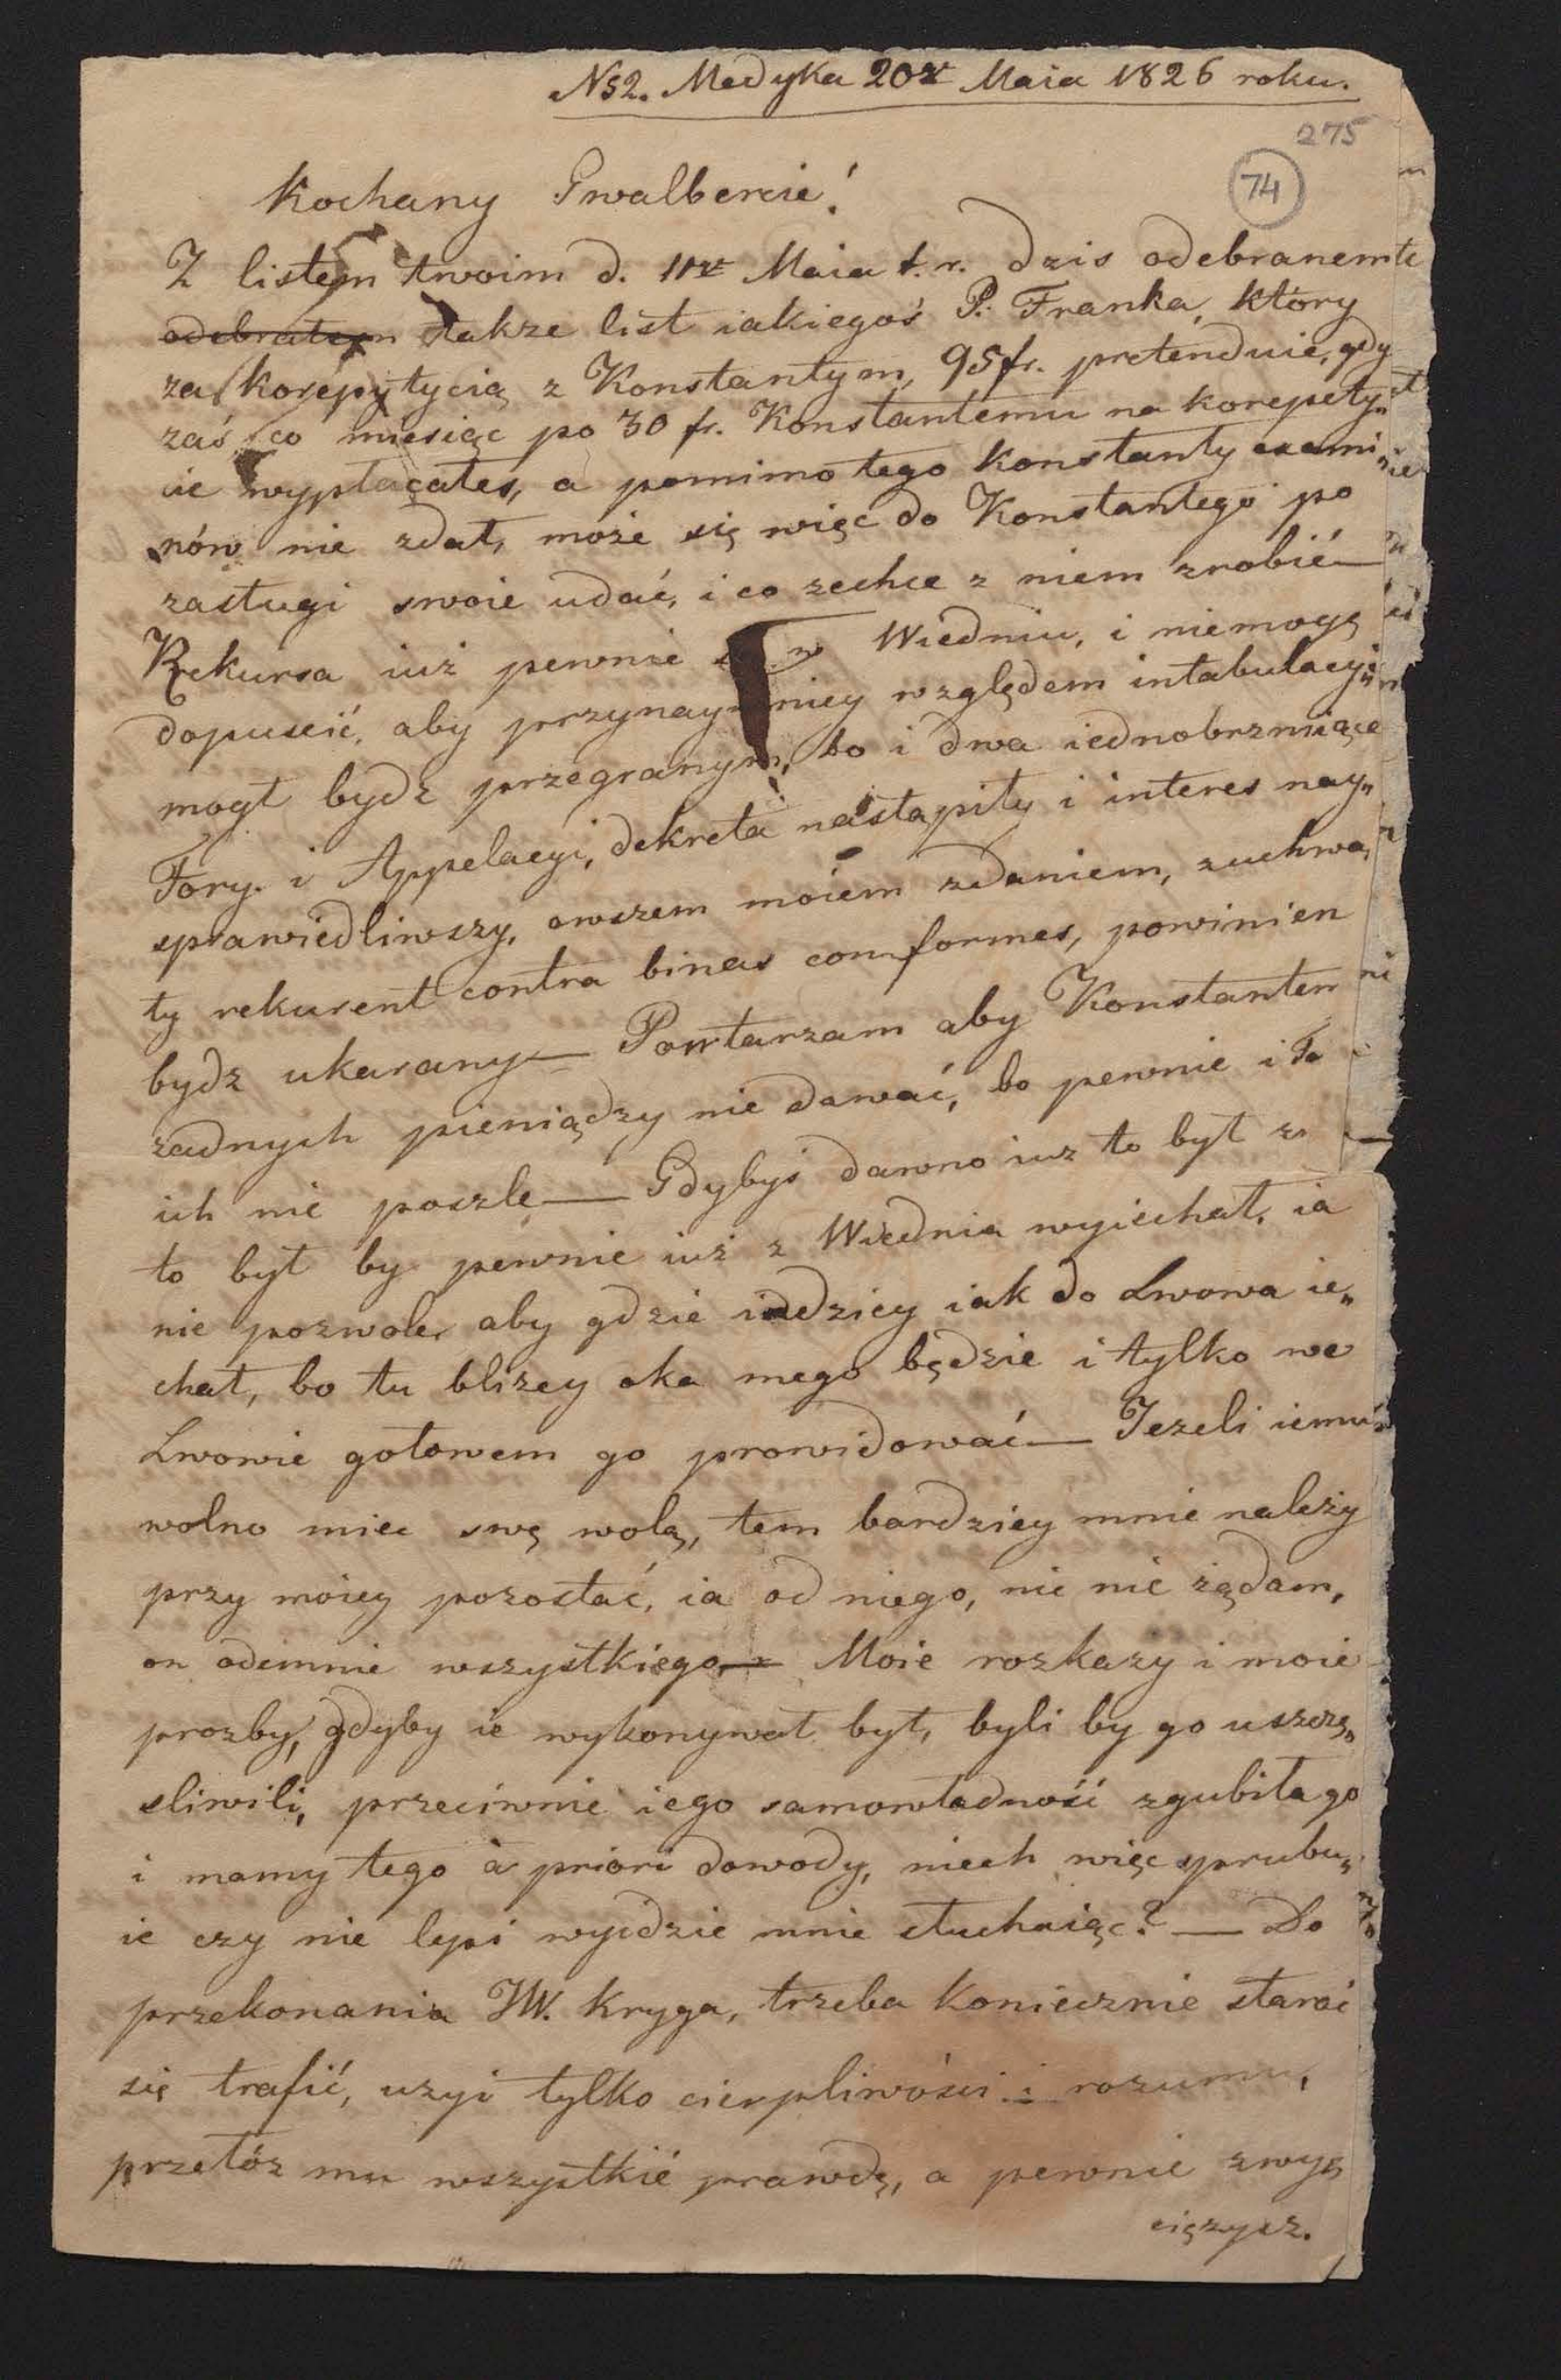 N52. Medyka 20go Maia 1826 roku.
275
74
Kochany Gwalbercie!
Z listem twoim d. 11go Maia t. r. dzis odebranem
odebrałem także list iakiegoś P. Franka, który
za korepytycią z Konstantym, 95 fr. pretenduie, gdy
zaś co miesiąc po 30 fr. Konstantemu na korepety„
cie wypłacałes, a pomimo tego Konstanty exami„
nów nie zdał, może się więc do Konstantego po
zasługi swoie udać, i co zechce z niem zrobić —
Rekursa iuż pewnie w Wiedniu, i niemogę
dopuscić, aby przynaymniey względem intabulacyi
mogł bydz przegranym, bo i dwa iednobrzmiące
Fory. i Appelacyi, dekreta nastąpiły i interes nay„
sprawiedliwszy, owszem moiem zdaniem, zuchwa„
ły rekurent contra binas conformes, powinien
bydz ukarany — Powtarzam aby Konstantem
zadnych pieniądzy nie dawać, bo pewnie i Ja
ich nie poszlę — Gdybyś dawno iuz to był
to był by pewnie iuż z Wiednia wyiechał, ia
nie pozwole, aby gdzie indziey iak do Lwowa ie„
chał, bo tu blizey oka mego będzie i tylko we
Lwowie gotowem go prowidować — Jezeli iemu
wolno miec swę wolą, tem bardziey mnie należy
przy moiey pozostać, ia od niego, nic nie żądam,
on odemnie wszystkiego — Moie rozkazy i moie
prozby, gdyby ie wykonywał był, byli by go uszczę„
sliwili, przeciwnie iego samowładność zgubiła go
i mamy tego à priori dowody, niech więc sprubu„
ie czy nie lepi wyidzie mnie słuchaiąc? — Do
przekonania JW. Kryga, trzeba koniecznie starać
się trafić, uzyi tylko cierpliwości i rozumu,
przełóz mu wszystkie prawdę, a pewnie zwy„
ciężysz.